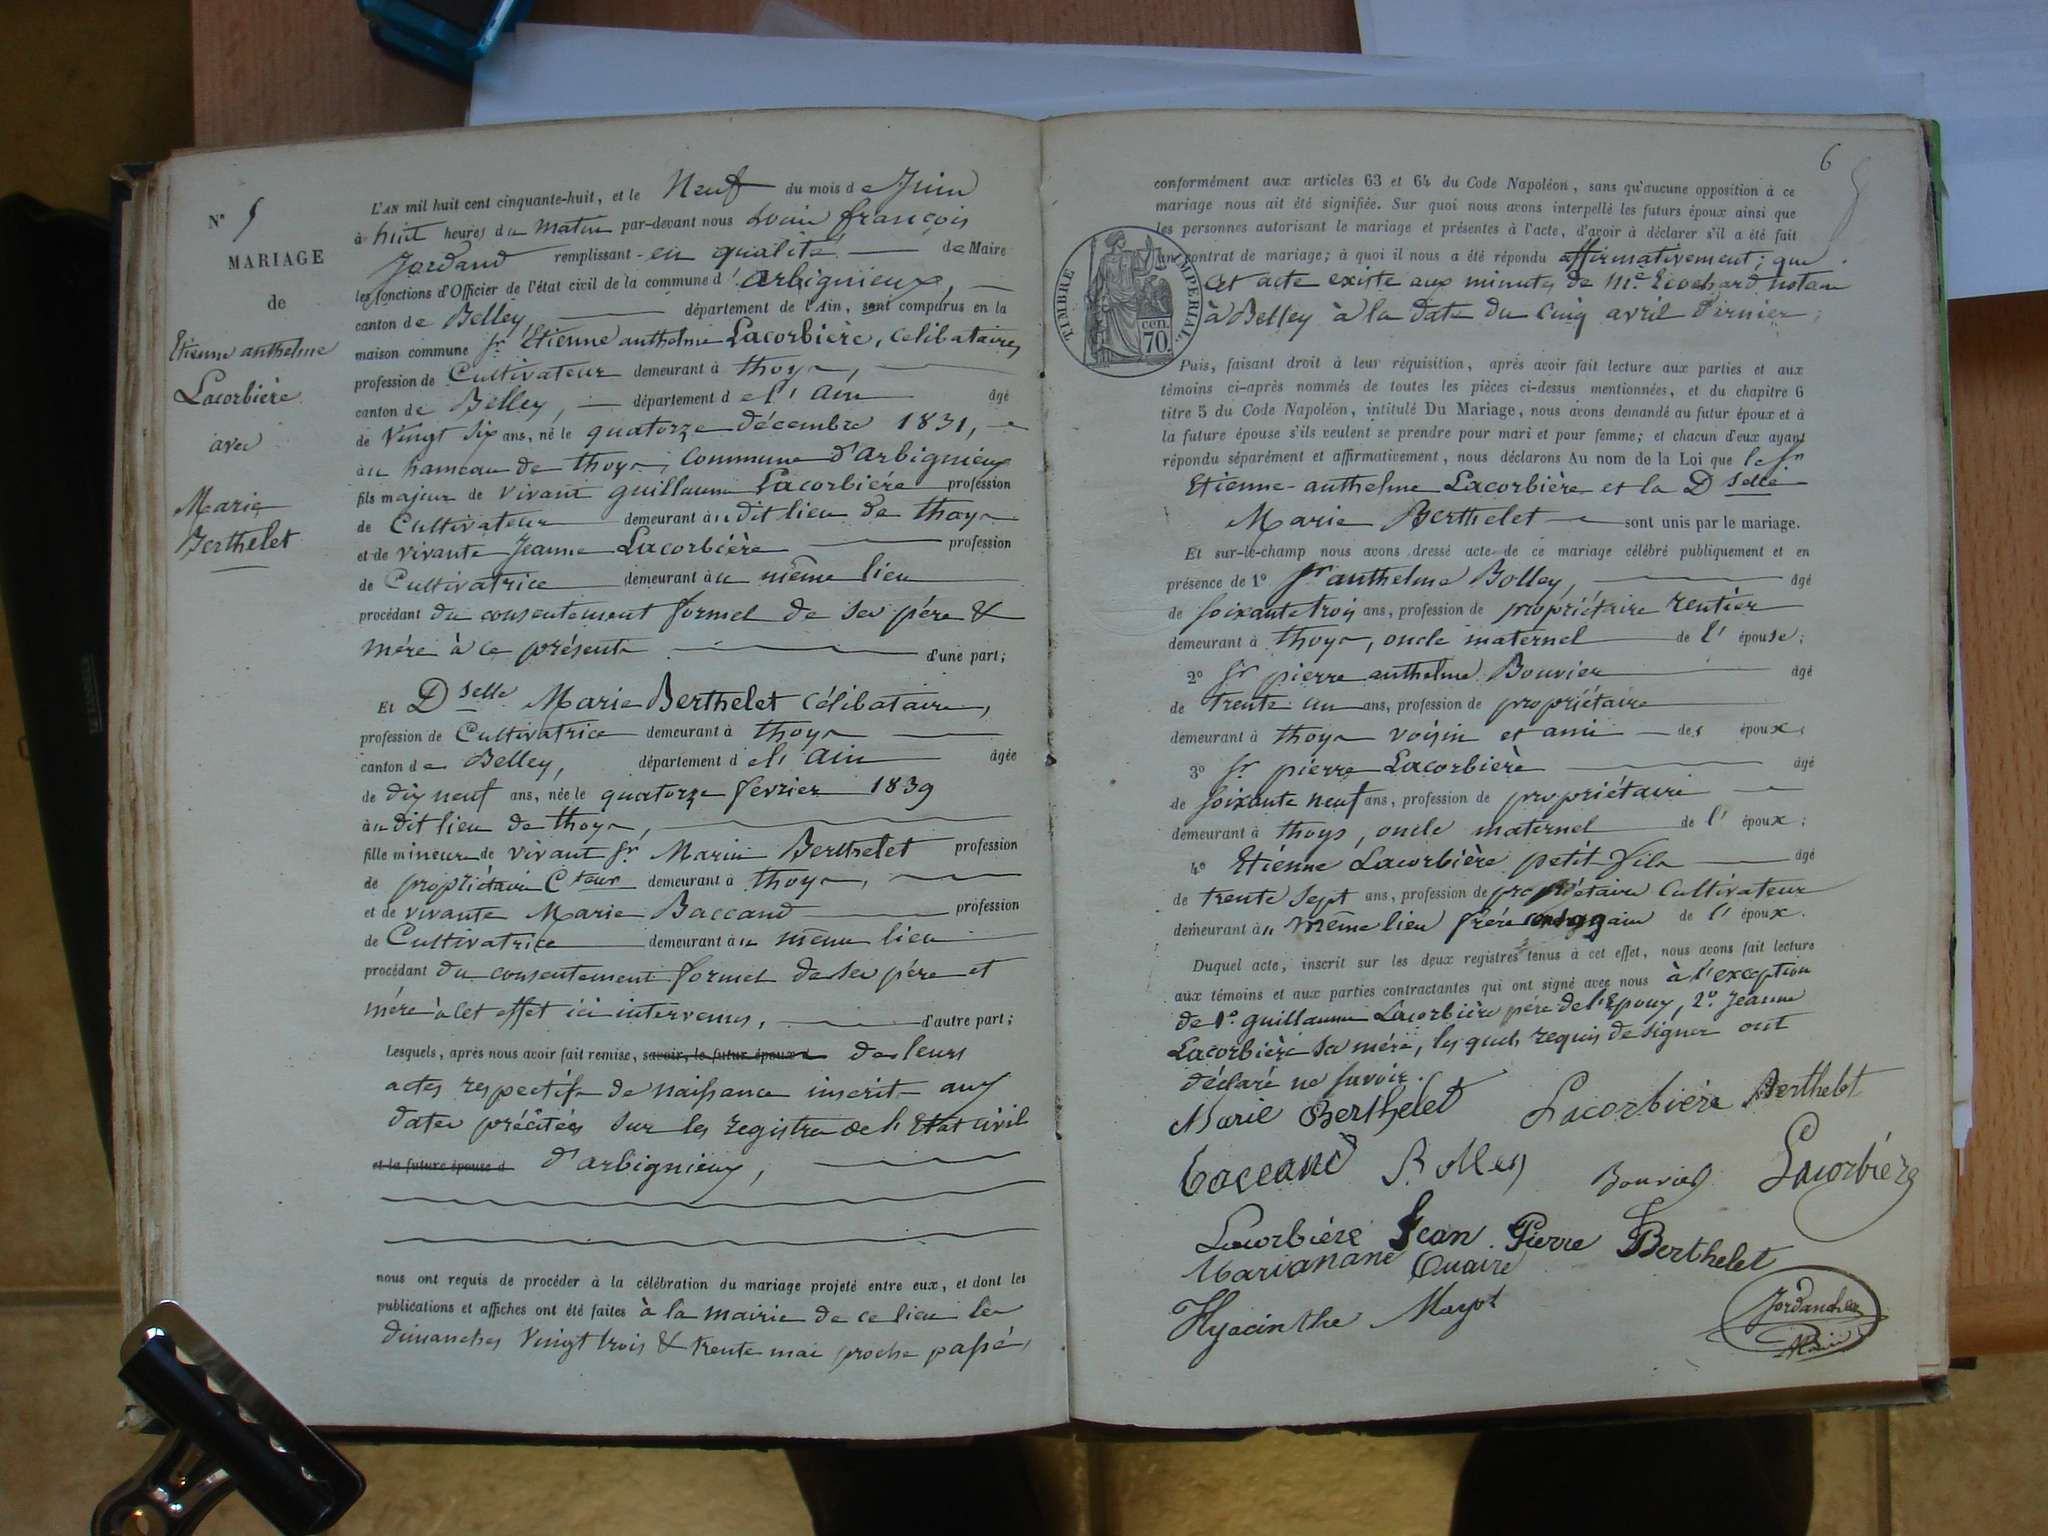 N° 5
MARIAGE
de
Etienne anthelme
Lacorbière
avec
Marie
Berthelet
L'AN mil huit cent cinquante-huit, et le Neuf du mois de Juin
à huit heures du matin par-devant nous Louis françois
Jordand remplissant en qualité de Maire
les fonctions d'Officier de l'état civil de la commune d'arbignieux,
canton de Belley département de l'Ain, sont comparus en la
maison commune Sr Etienne anthelme Lacorbière, célibataire,
profession de Cultivateur demeurant à thoys,
canton de Belley, département de l'ain âgé
de vingt six ans, né le quatorze décembre 1831,
au hameau de thoys, commune d'arbignieux
fils majeur de vivant guillaume Lacorbière profession
de Cultivateur demeurant au dit lieu de thoys
et de vivante Jeanne Lacorbière profession
de Cultivatrice demeurant au même lieu
procédant du consentement formel de ses père &
mère à ce présents d'une part;
Et Dselle Marie Berthelet célibataire,
profession de Cultivatrice demeurant à thoys
canton de Belley, département de l'ain âgée
de dix neuf ans, née le quatorze février 1839
au dit lieu de thoys,
fille mineure de vivant Sr Marin Berthelet profession
de propriétaire Cteur demeurant à thoys,
et de vivante Marie Baccand profession
de Cultivatrice demeurant au même lieu
procédant du consentement formel de ses père et
mère à cet effet ici intervenus, d'autre part;
Lesquels, après nous avoir fait remise, savoir, le futur époux d de leurs
actes respectifs de naissance inscrits aux
dates précitées sur les registres de l'Etat civil
et la future épouse d d'arbignieux,
nous ont requis de procéder à la célébration du mariage projeté entre eux, et dont les
publications et affiches ont été faites à la mairie de ce lieu les
dimanches vingt trois & trente mai proche passé,
6
5
conformément aux articles 63 et 64 du Code Napoléon, sans qu'aucune opposition à ce
mariage nous ait été signifiée. Sur quoi nous avons interpellé les futurs époux ainsi que
les personnes autorisant le mariage et présentes à l'acte, d'avoir à déclarer s'il a été fait
un contrat de mariage; à quoi il nous a été répondu affirmativement; que
cet acte existe aux minutes de Me Ecochard notaire
à Belley à la date du cinq avril dernier;
TIMBRE IMPERIAL
70 cen.
Puis, faisant droit à leur réquisition, après avoir fait lecture aux parties et aux
témoins ci-après nommés de toutes les pièces ci-dessus mentionnées, et du chapitre 6
titre 5 du Code Napoléon, intitulé Du Mariage, nous avons demandé au futur époux et à
la future épouse s'ils veulent se prendre pour mari et pour femme; et chacun d'eux ayant
répondu séparément et affirmativement, nous déclarons Au nom de la Loi que le Sr
Etienne-anthelme Lacorbière et la Dselle
Marie Berthelet sont unis par le mariage.
Et sur-le-champ nous avons dressé acte de ce mariage célébré publiquement et en
présence de 1° Sr anthelme Bolley, âgé
de soixante trois ans, profession de propriétaire rentier
demeurant à thoys, oncle maternel de l'épouse;
2° Sr pierre anthelme Bouvier âgé
de trente un ans, profession de propriétaire
demeurant à thoys voisin et ami des époux;
3° Sr pierre Lacorbière âgé
de soixante neuf ans, profession de propriétaire
demeurant à thoys, oncle maternel de l'époux;
4° Etiénne Lacorbière petit fils âgé
de trente sept ans, profession de propriétaire Cultivateur
demeurant au même lieu frère germain de l'époux.
Duquel acte, inscrit sur les deux registres tenus à cet effet, nous avons fait lecture
aux témoins et aux parties contractantes qui ont signé avec nous à l'exception
de 1° guillaume Lacorbière père de l'Epoux, 2° Jeanne
Lacorbière sa mère, les quels requis de signer ont
déclaré ne savoir.
Marie Berthelet Lacorbière Berthelet
baccand Bolley Bouvier Lacorbière
Lacorbière Jean Pierre Berthelet
Marianane
Hyacinthe
Jordand
Maire